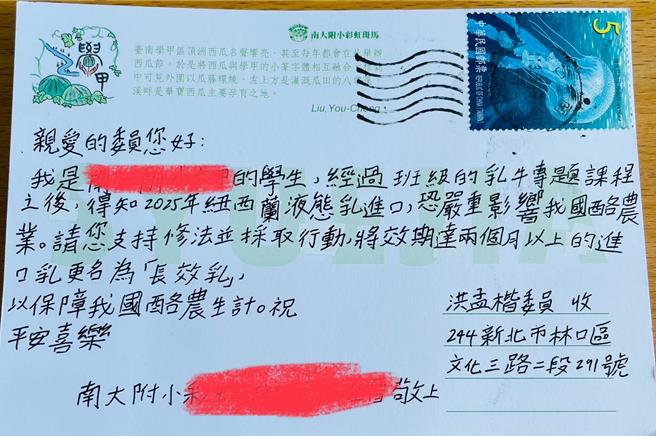 南大附小彩虹斑馬
臺南學甲區頂洲西瓜名聲響亮，甚至每年都會在此舉辦
西瓜節，於是將西瓜與學甲的小篆字體相互融合，
中可見外圍以瓜藤環繞，左上方是灌溉瓜田的八
溪畔是華寶西瓜主要孕育之地。
Liu, You-Cheng
學甲
5
中華民國郵票
REPUBLIC OF CHINA (TAIWAN)
親愛的委員您好：
我是 的學生，經過班級的乳牛專題課程
之後，得知2025年紐西蘭液態乳進口，恐嚴重影響我國酪農
業。請您支持修法並採取行動，將效期達兩個月以上的進
口乳更名為「長效乳」，
以保障我國酪農生計。祝
平安喜樂
南大附小 敬上
洪孟楷委員 收
244新北市林口區
文化三路二段291號